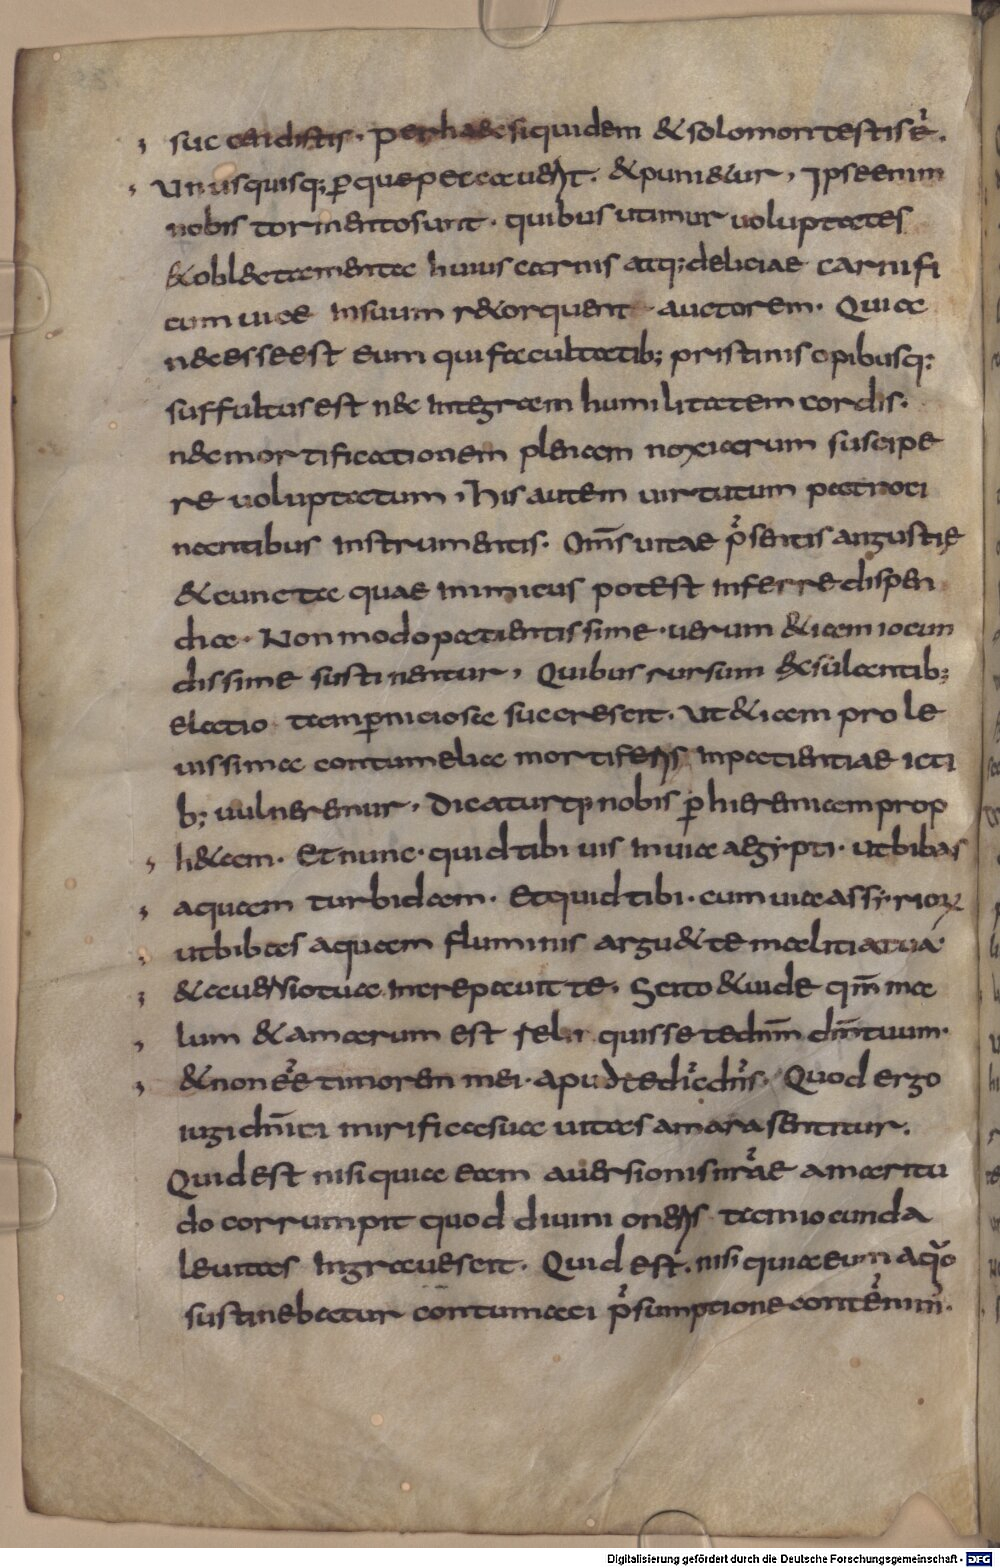 succendistis. per haec siquidem & solomon testis ē.
Unusquisq; ꝑ quę peccauerit. & puni&ur, Ipse enim
nobis tormento sunt. quibus utimur uoluptates
& oblectamenta huius carnis atq; deliciae carnifi
cum uice insuum r&orquent auctorem. Quia
necesse est eum qui facultatib; pristinis opibusq;
suffultus est nec integram humilitatem cordis.
nec mortificationem plenam noxiarum suscipe
re uoluptatum, his autem uirtutum patroci
nantibus instrumentis. Om̄s uitae p̄sentis angustię
& cunctae quae inimicus potest inferre dispen
dia. Non modo patientissime. uerum &iam iocun
dissime sustinentur, Quibus rursum exsulantib;
elatio tam ꝑniciosa succrescit. ut &iam pro le
uissima contumelia mortiferis inpatientiae icti
b; uulneremur, Dicaturq; nobis ꝑ hieremiam prop
h&am. Et nunc. quid tibi uis inuia aegypti. ut bibas
aquam turbidam. Et quid tibi. cum uia assyrioꝝ
ut bibas aquam fluminis argu&te malitia tua
& auersio tua increpauit te. Scito & uide qm̄ ma
lum & amarum est reliquisse te dnm̄ dm̄ tuum.
& non ee̅ timorem mei. apud te dic̄ dn̄s. Quod ergo
iugi dn̄ici mirifica suauitas amara sentitur.
Quid est nisi quia eam auersionis nr̄ae amaritu
do corrumpit quod diuini oneris tam iocunda
leuitas ingrauescit. Quid est. nisi quia eum a quo
sustinebatur contumaci p̄sumptione contēnim̄.
Digitalisierung gefördert durch die Deutsche Forschungsgemeinschaft - DFG